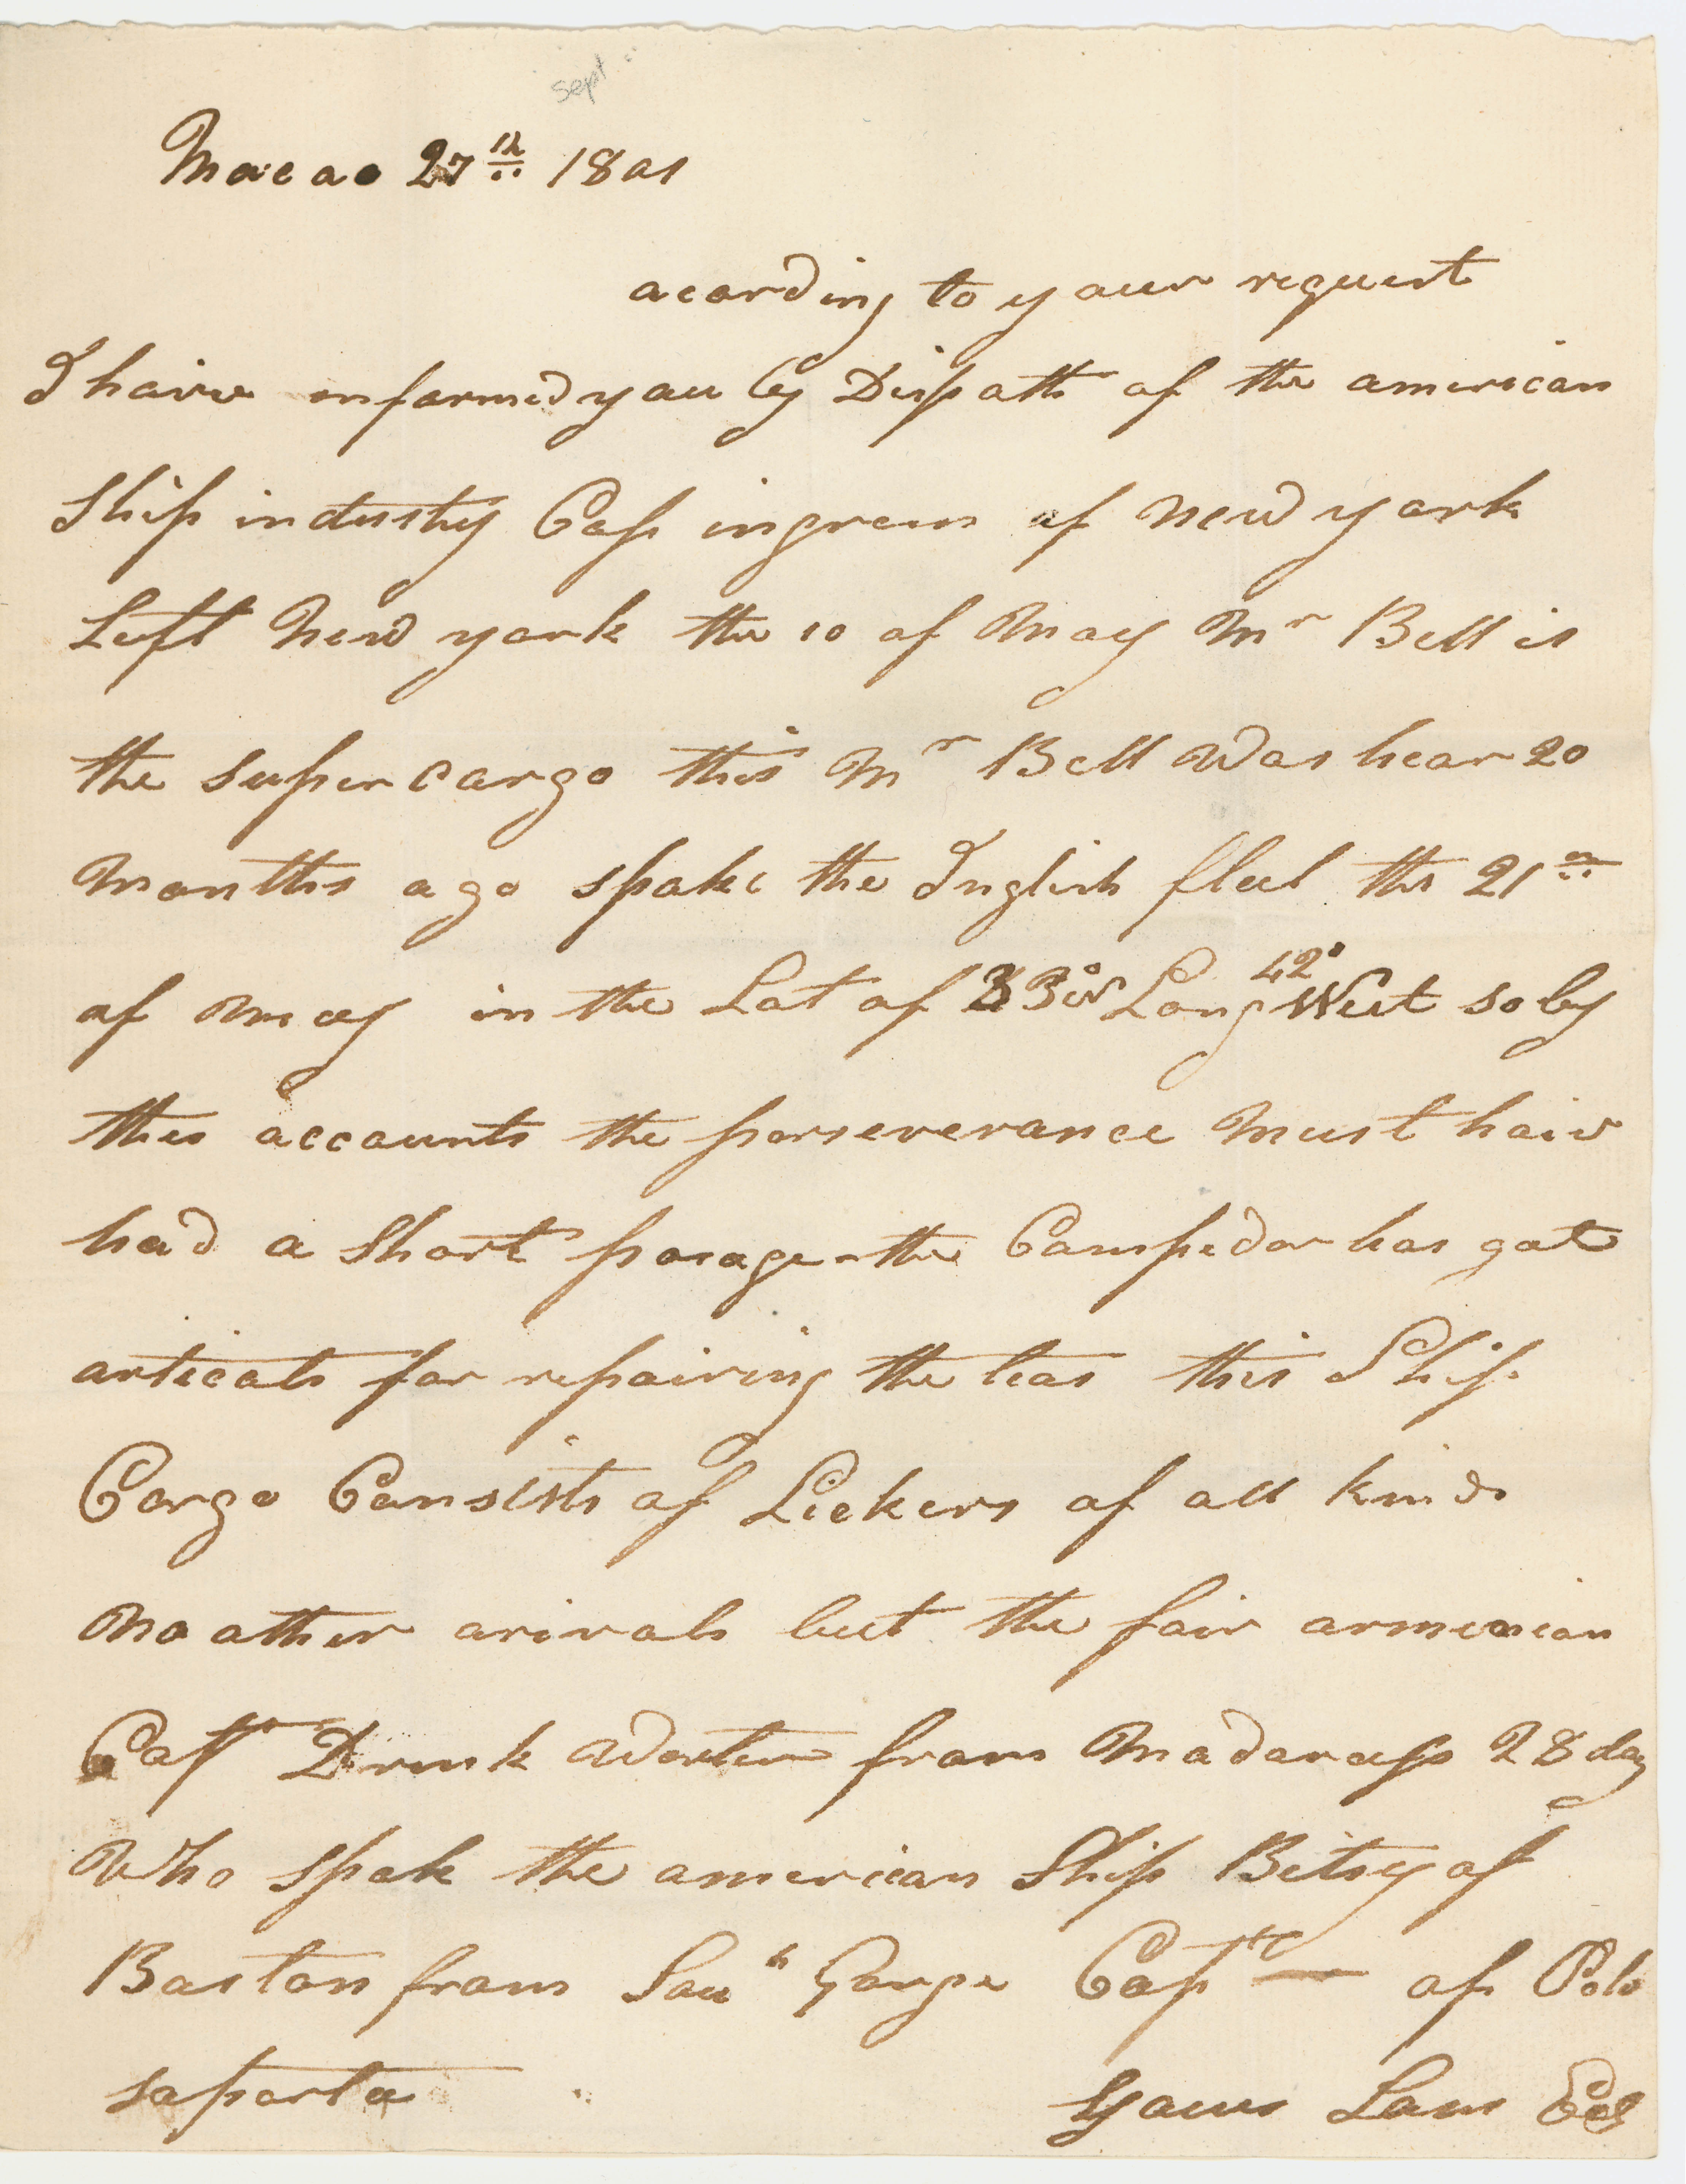 Sept
Macao 27th 1801
acording to your request
I haive informed you by Dispath of the american
Ship industry Cap ingram of new york
Left New york the 10 of May Mr Bell is
the super cargo this Mr Bell was hear 20
Months ago spoke the Inglish fleet the 21
of May in the Lat of 33° Long 42° West so by
this accounts the perseverance Must haiv
had a Short pasage - the Campedor has got
articals for repairing the this Ship
Cargo Consists of Lickers of all kinds
No other arivals but the fair armenian
Capt from Madarass 28 day
Who spok the american Ship Bitsy of
Boston from Sou Gorge Capt — of Polo
saporta Yours Sam